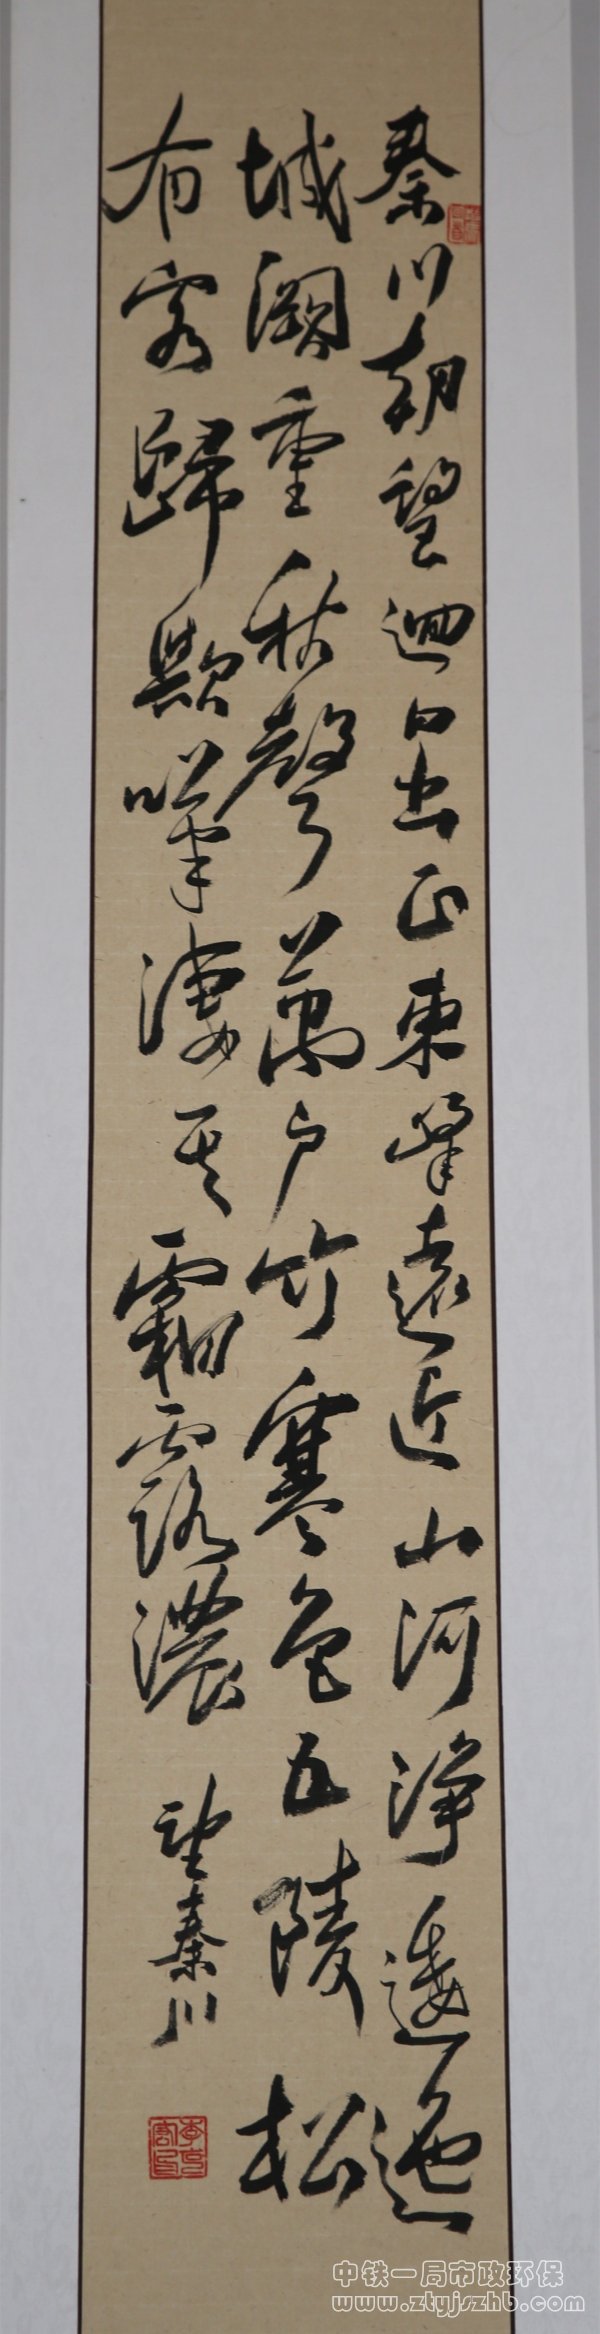 秦川朝望迥日出正東峰遠近山河淨逶迤
城闕重秋聲萬戶竹寒色五陵松
有客歸歟嘆淒其霜露濃 望秦川
中铁一局市政环保
www.ztyjszhb.com